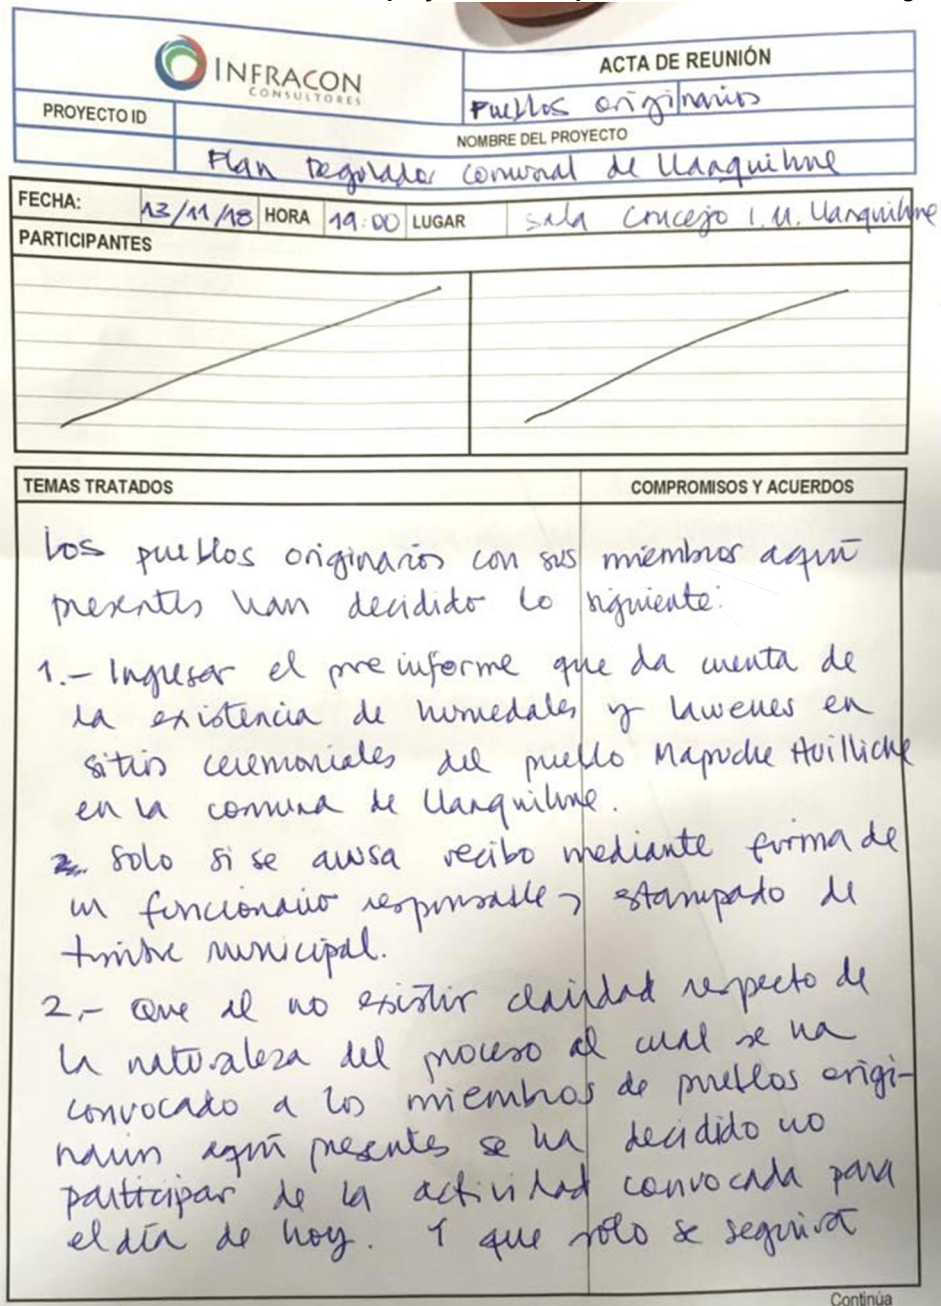 INFRACON
CONSULTORES
ACTA DE REUNIÓN
Pueblos originarios
PROYECTO ID
NOMBRE DEL PROYECTO
Plan Regulador comunal de Llanquihue
FECHA: 13/11/18 HORA 19:00 LUGAR Sala Concejo I. M. Llanquihue
PARTICIPANTES
TEMAS TRATADOS COMPROMISOS Y ACUERDOS
Los pueblos originarios con sus miembros aquí
presentes han decidido lo siguiente:
1.- Ingresar el pre informe que da cuenta de
la existencia de humedales y lawenes en
sitios ceremoniales del pueblo Mapuche Huilliche
en la comuna de Llanquihue.
Solo si se acusa recibo mediante firma de
un funcionario responsable y estampado de
timbre municipal.
2.- Que al no existir claridad respecto de
la naturaleza del proceso al cual se ha
convocado a los miembros de pueblos origi-
narios aquí presentes se ha decidido no
participar de la actividad convocada para
el día de hoy. Y que solo se seguirá
Continúa